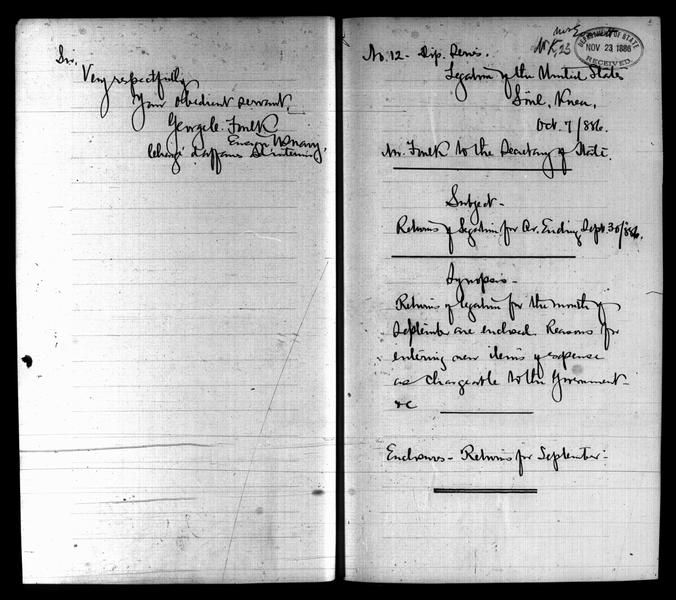 Sir,
Very respectfully
Your obedient servant,
George C. Foulk
Ensign U.S. Navy,
Chargé d'affaires ad interim.
DEPARTMENT OF STATE
NOV 23 1886
RECEIVED
No. 12. Dip. Series.
Legation of the United States
Söul, Korea,
Oct. 7/886.
Mr. Foulk to the Secretary of State.
Subject -
Returns of Legation for Qr. Ending Sept. 30/886.
Synopsis -
Returns of legation for the month of
September are enclosed. Reasons for
entering new items of expense
as chargeable to the Government -
&c
Enclosures - Returns for September -